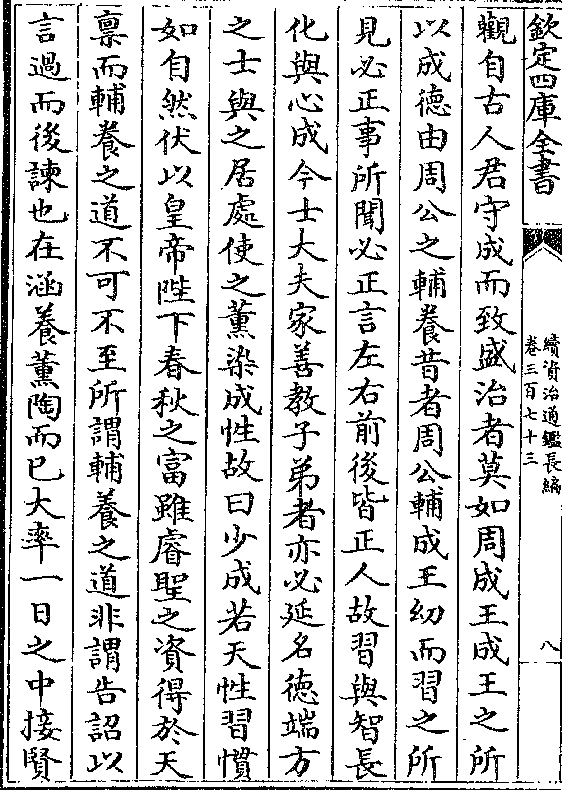 欽定四庫全書
續資治通鑑長編
卷三百七十三
八
觀自古人君守成而致盛治者莫如周成王成王之所
以成德由周公之輔養昔者周公輔成王幼而習之所
見必正事所聞必正言左右前後皆正人故習與智長
化與心成今士大夫家善教子弟者亦必延名德端方
之士與之居處使之薰染成性故曰少成若天性習慣
如自然伏以皇帝陛下春秋之富雖睿聖之資得於天
禀而輔養之道不可不至所謂輔養之道非謂告詔以
言過而後諫也在涵養薰陶而已大率一日之中接賢